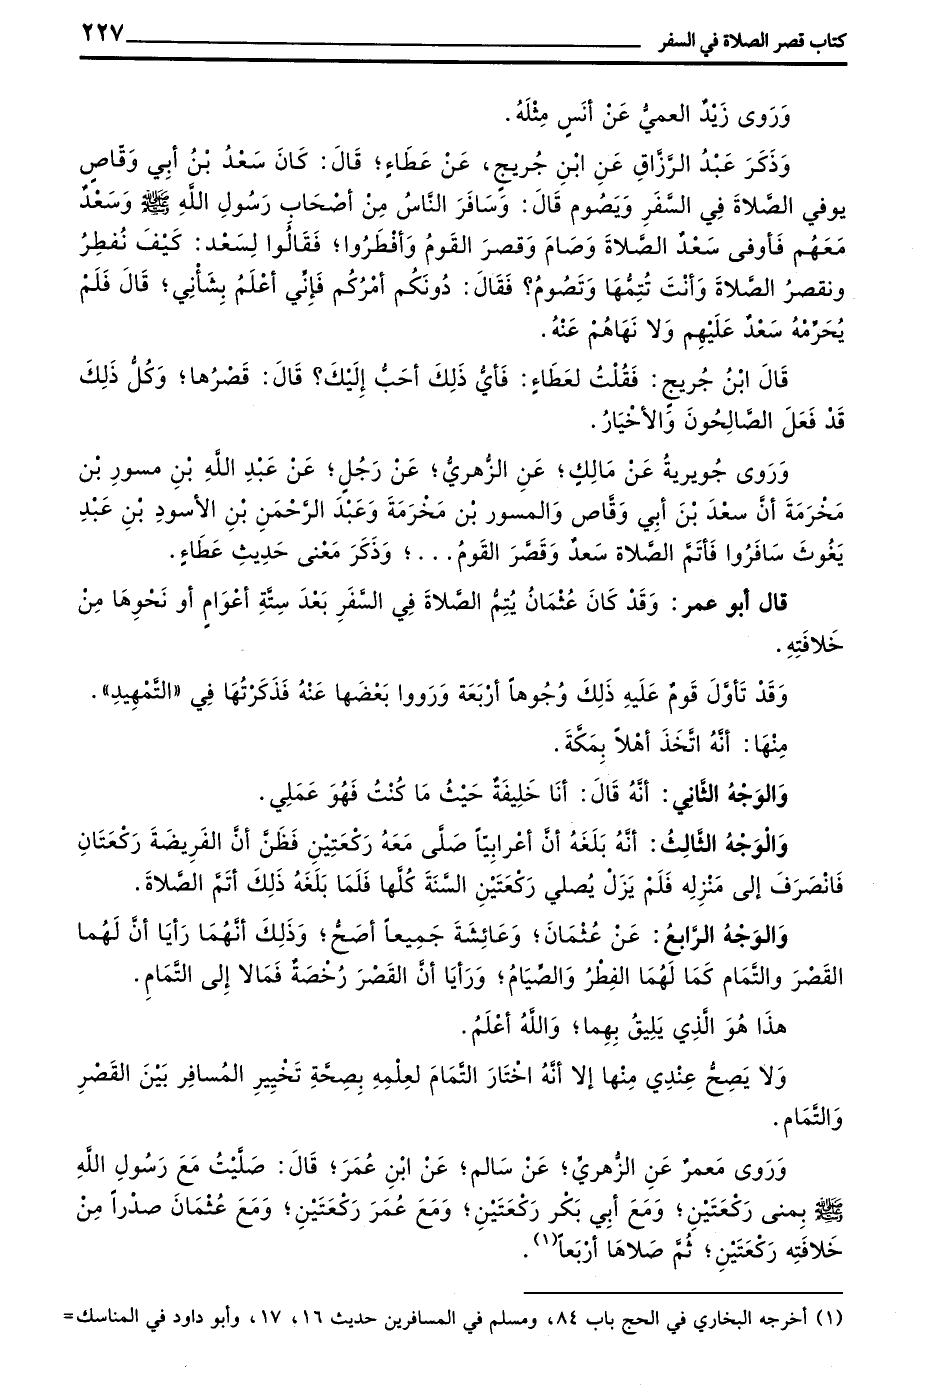 كتاب قصر الصلاة في السفر ٢٢٧
وَرَوى زَيْدٌ العميُّ عَنْ أنَسٍ مِثْلَهُ.
وَذَكَرَ عَبْدُ الرَّزَّاقِ عَنِ ابْنِ جُريجٍ، عَنْ عَطَاءٍ؛ قَالَ: كَانَ سَعْدُ بْنُ أبِي وَقَّاصٍ
يوفي الصَّلاةَ فِي السَّفَرِ وَيَصُوم قَالَ: وَسَافَرَ النَّاسُ مِنْ أصْحَابِ رَسُولِ اللَّهِ ﷺ وَسَعْدٌ
مَعَهُم فَأوفى سَعْدٌ الصَّلاةَ وَصَامَ وَقصرَ القَومُ وَأفْطَرُوا؛ فَقَالُوا لِسَعْد: كَيْفَ نُفطِرُ
ونقصرُ الصَّلاةَ وَأنْتَ تُتِمُّهَا وَتَصُومُ؟ فَقَالَ: دُونَكُم أمْرُكُم فَإنِّي أعْلَمُ بِشَأْنِي؛ قَالَ فَلَمْ
يُحَرِّمْهُ سَعْدٌ عَلَيْهِم وَلا نَهَاهُمْ عَنْهُ.
قَالَ ابْنُ جُريجٍ: فَقُلْتُ لعَطَاءٍ: فَأيُّ ذَلِكَ أحَبُّ إلَيْكَ؟ قَالَ: قَصْرُها؛ وَكُلُّ ذَلِكَ
قَدْ فَعَلَ الصَّالِحُونَ وَالأخْيَارُ.
وَرَوى جُويريةُ عَنْ مَالِكٍ؛ عَنِ الزُّهريُّ؛ عَنْ رَجُلٍ؛ عَنْ عَبْدِ اللَّهِ بْنِ مسورِ بْنِ
مَخْرَمَةَ أنَّ سعْدَ بْنَ أبي وَقَّاص وَالمسور بْن مَخْرَمَةَ وَعَبْدَ الرَّحْمَنِ بْنِ الأسودِ بْنِ عَبْدِ
يَغُوثَ سَافَرُوا فَأتَمَّ الصَّلاةَ سَعدٌ وَقَصَّرَ القَومُ. . .؛ وَذَكَرَ مَعْنى حَدِيثِ عَطَاءٍ.
قال أبو عمر: وَقَدْ كَانَ عُثْمَانُ يُتِمُّ الصَّلاةَ فِي السَّفَرِ بَعْدَ سِتَّةِ أعْوَامٍ أو نَحْوِهَا مِنْ
خَلافَتِهِ.
وَقَدْ تَأوَّلَ قَومٌ عَلَيهِ ذَلِكَ وُجُوهاً أرْبَعَة وَرَووا بَعْضَها عَنْهُ فَذَكَرْتُهَا فِي «التَّمْهِيدِ».
مِنْهَا: أنَّهُ اتَّخَذَ أهْلاً بِمَكَّةَ.
وَالوَجْهُ الثَّانِي: أنَّهُ قَالَ: أنَا خَلِيفَةٌ حَيْثُ مَا كُنْتُ فَهُوَ عَمَلِي.
وَالْوَجْهُ الثَّالِثُ: أنَّهُ بَلَغَهُ أنَّ أعْرابِيّاً صَلَّى مَعَهُ رَكْعَتِيْنِ فَظَنَّ أنَّ الفَرِيضَةَ رَكْعَتَانِ
فَانْصَرَفَ إلى مَنْزِلِهِ فَلَمْ يَزَلْ يُصلي رَكْعَتَيْنِ السَّنَةَ كُلَّها فَلَمَا بَلَغَهُ ذَلِكَ أتَمَّ الصَّلاةَ.
وَالوَجْهُ الرَّابِعُ: عَنْ عُثْمَانَ؛ وَعَائِشَةَ جَمِيعاً أصَحُّ؛ وَذَلِكَ أنَّهُمَا رَأيَا أنَّ لَهُما
القَصْرَ والتَّمَام كَمَا لَهُمَا الفِطْرُ وَالصِّيَامُ؛ وَرَأيَا أنَّ القَصْرَ رُخْصَةٌ فَمَالا إلى التَّمَامِ.
هذَا هُوَ الَّذِي يَلِيقُ بِهِما؛ وَاللَّهُ أعْلَمُ.
وَلا يَصِحُّ عِندِي مِنْها إلا أنَّهُ اخْتَارَ التَّمَامَ لعِلْمِهِ بِصِحَّةِ تَخْيِيرِ المُسافِرِ بَيْنَ القَصْرِ
وَالتَّمَامِ.
وَرَوى مَعمرٌ عَنِ الزُّهريِّ؛ عَنْ سَالم؛ عَنْ ابْنِ عُمَرَ؛ قَالَ: صَلَّيْتُ مَعَ رَسُولِ اللَّهِ
ﷺ بِمنى رَكْعَتَيْنِ؛ وَمَعَ أبِي بَكْر رَكْعَتَيْنِ؛ وَمَعَ عُمَرَ رَكْعَتَيْنِ؛ وَمَعَ عُثْمَانَ صدْراً مِنْ
خَلافَتِه رَكْعَتَيْنِ؛ ثُمَّ صَلاهَا أرْبَعاً(١).
(١) أخرجه البخاري في الحج باب ٨٤، ومسلم في المسافرين حديث ١٦، ١٧، وأبو داود في المناسك=